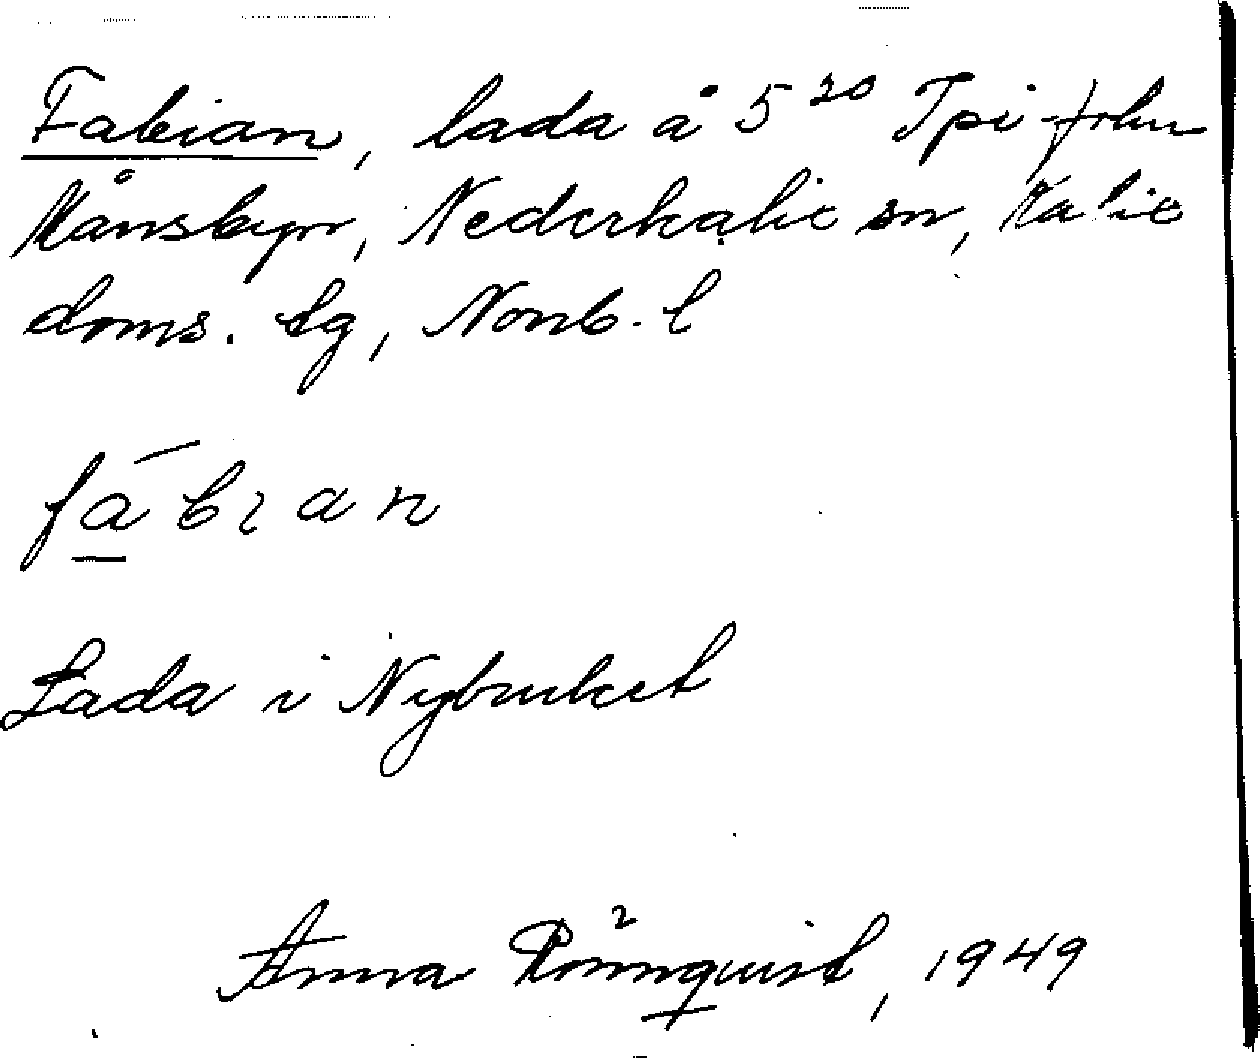 Fabian, lada å 5²⁰ Tpi frhn
Månsbyn, Nederkalix sn, Kalix
doms. tg, Nonb. l
fābιan
Lada i Nybruket
Anna Rönnquist, 1949